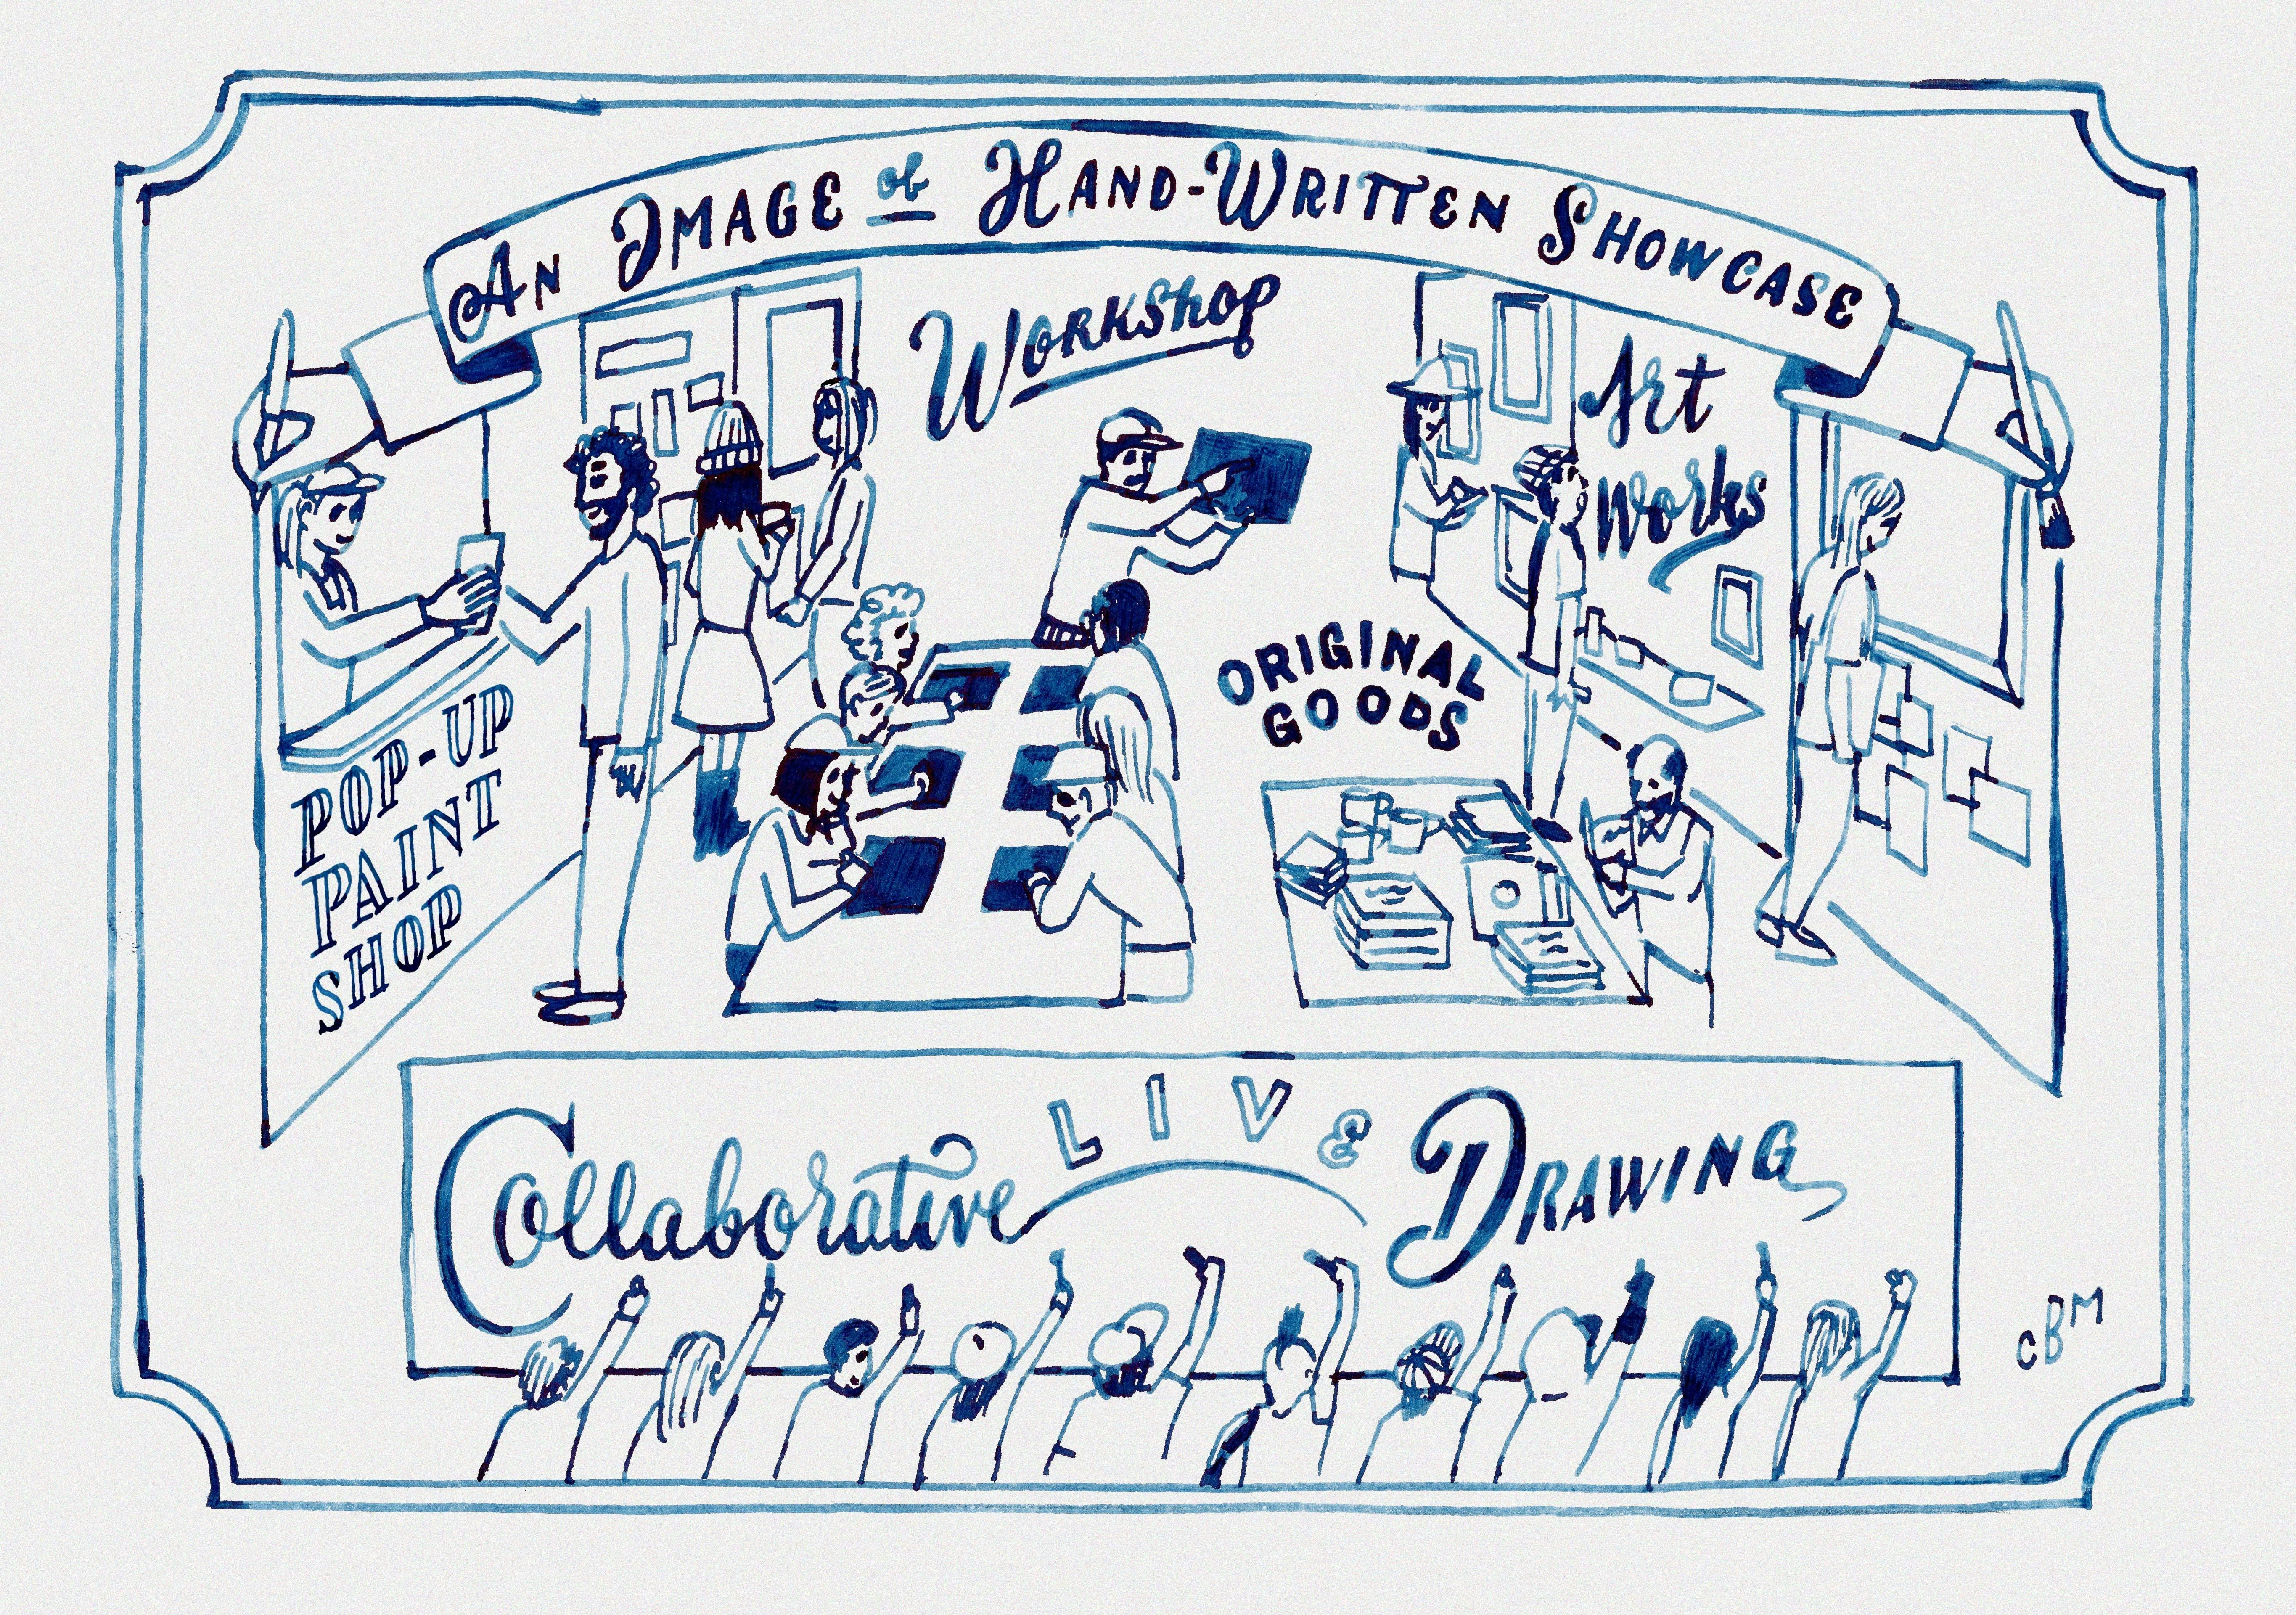 An Image of Hand-Written Showcase
Workshop
Art
Works
ORIGINAL
GOODS
POP-UP
PAINT
SHOP
Collaborative LIVE Drawing
CBM